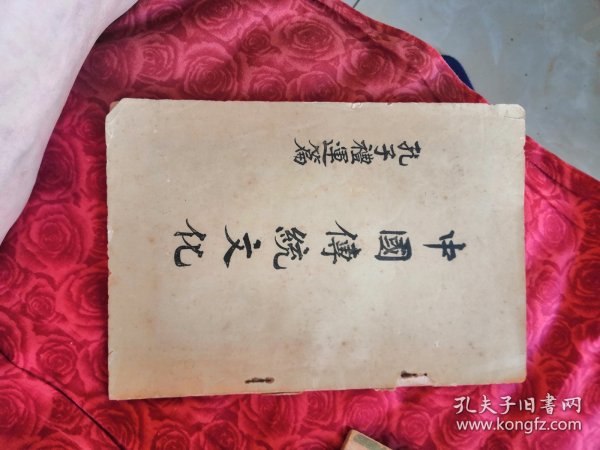 孔子禮運篇
中國傳統文化
孔夫子旧書网
www.kongfz.com